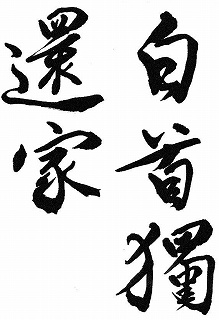 白首獨
還家